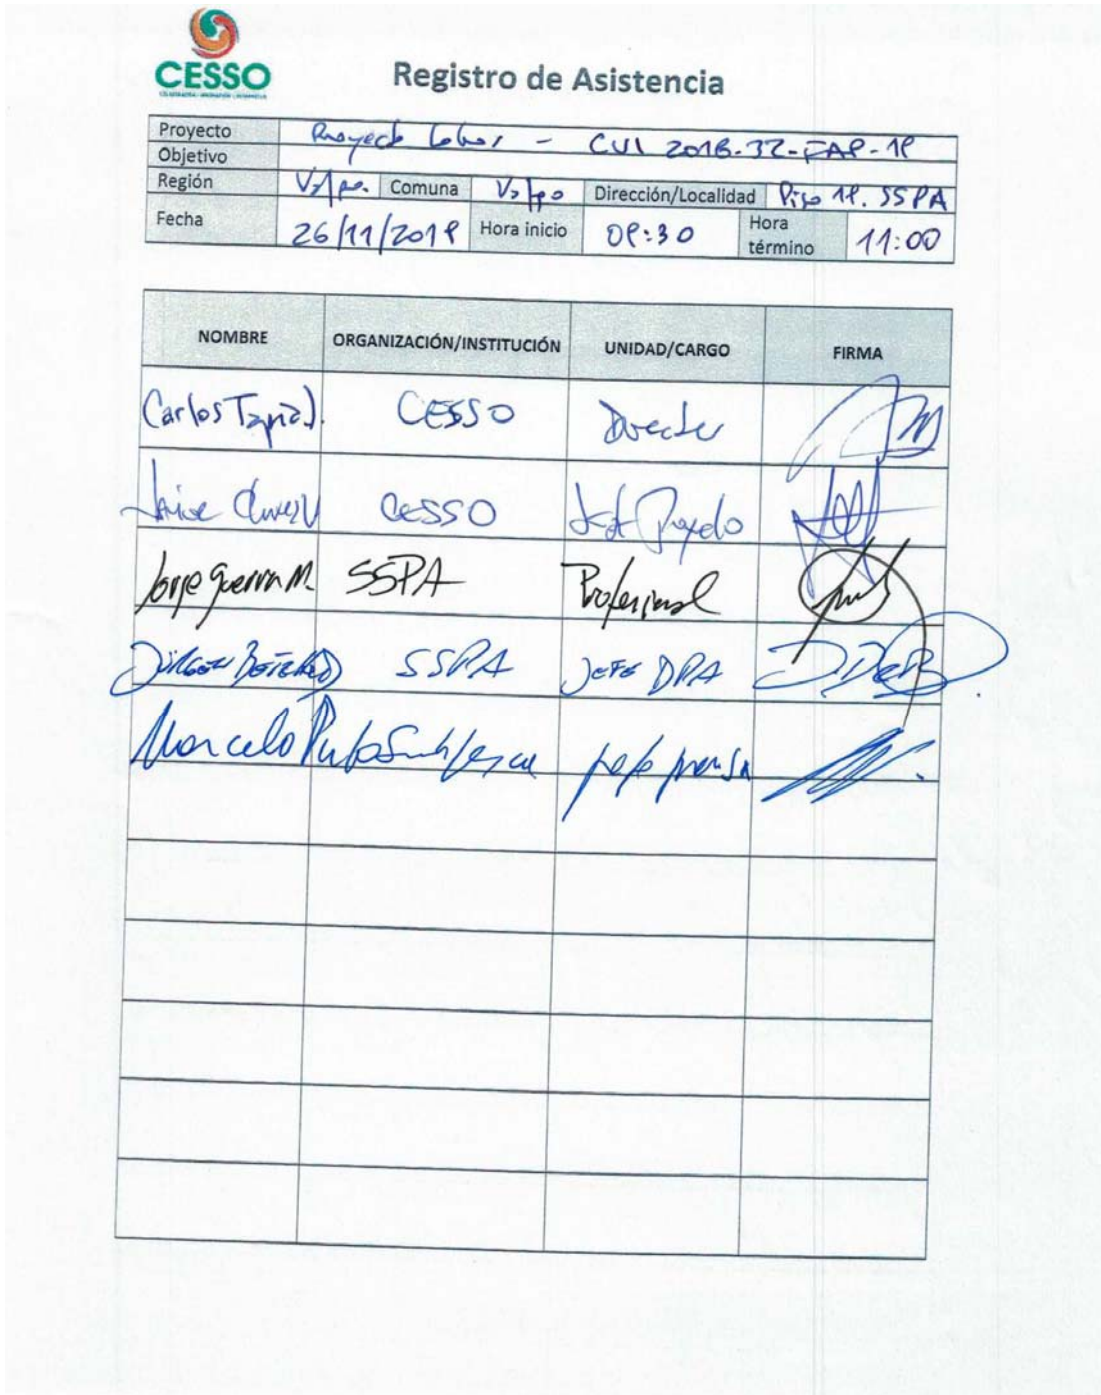 CESSO
Registro de Asistencia
Proyecto Proyecto Lobos - CUI 2018-32-FAP-19
Objetivo
Región Valpo. Comuna Valpo Dirección/Localidad Piso 19. SSPA
Fecha 26/11/2019 Hora inicio 09:30 Hora término 11:00
NOMBRE ORGANIZACIÓN/INSTITUCIÓN UNIDAD/CARGO FIRMA
Carlos Tapia J. CESSO Director
CESSO Jefe Proyecto
Jorge Guerra M. SSPA Profesional
SSPA JEFE DPA
Marcelo Subpesca jefe prensa